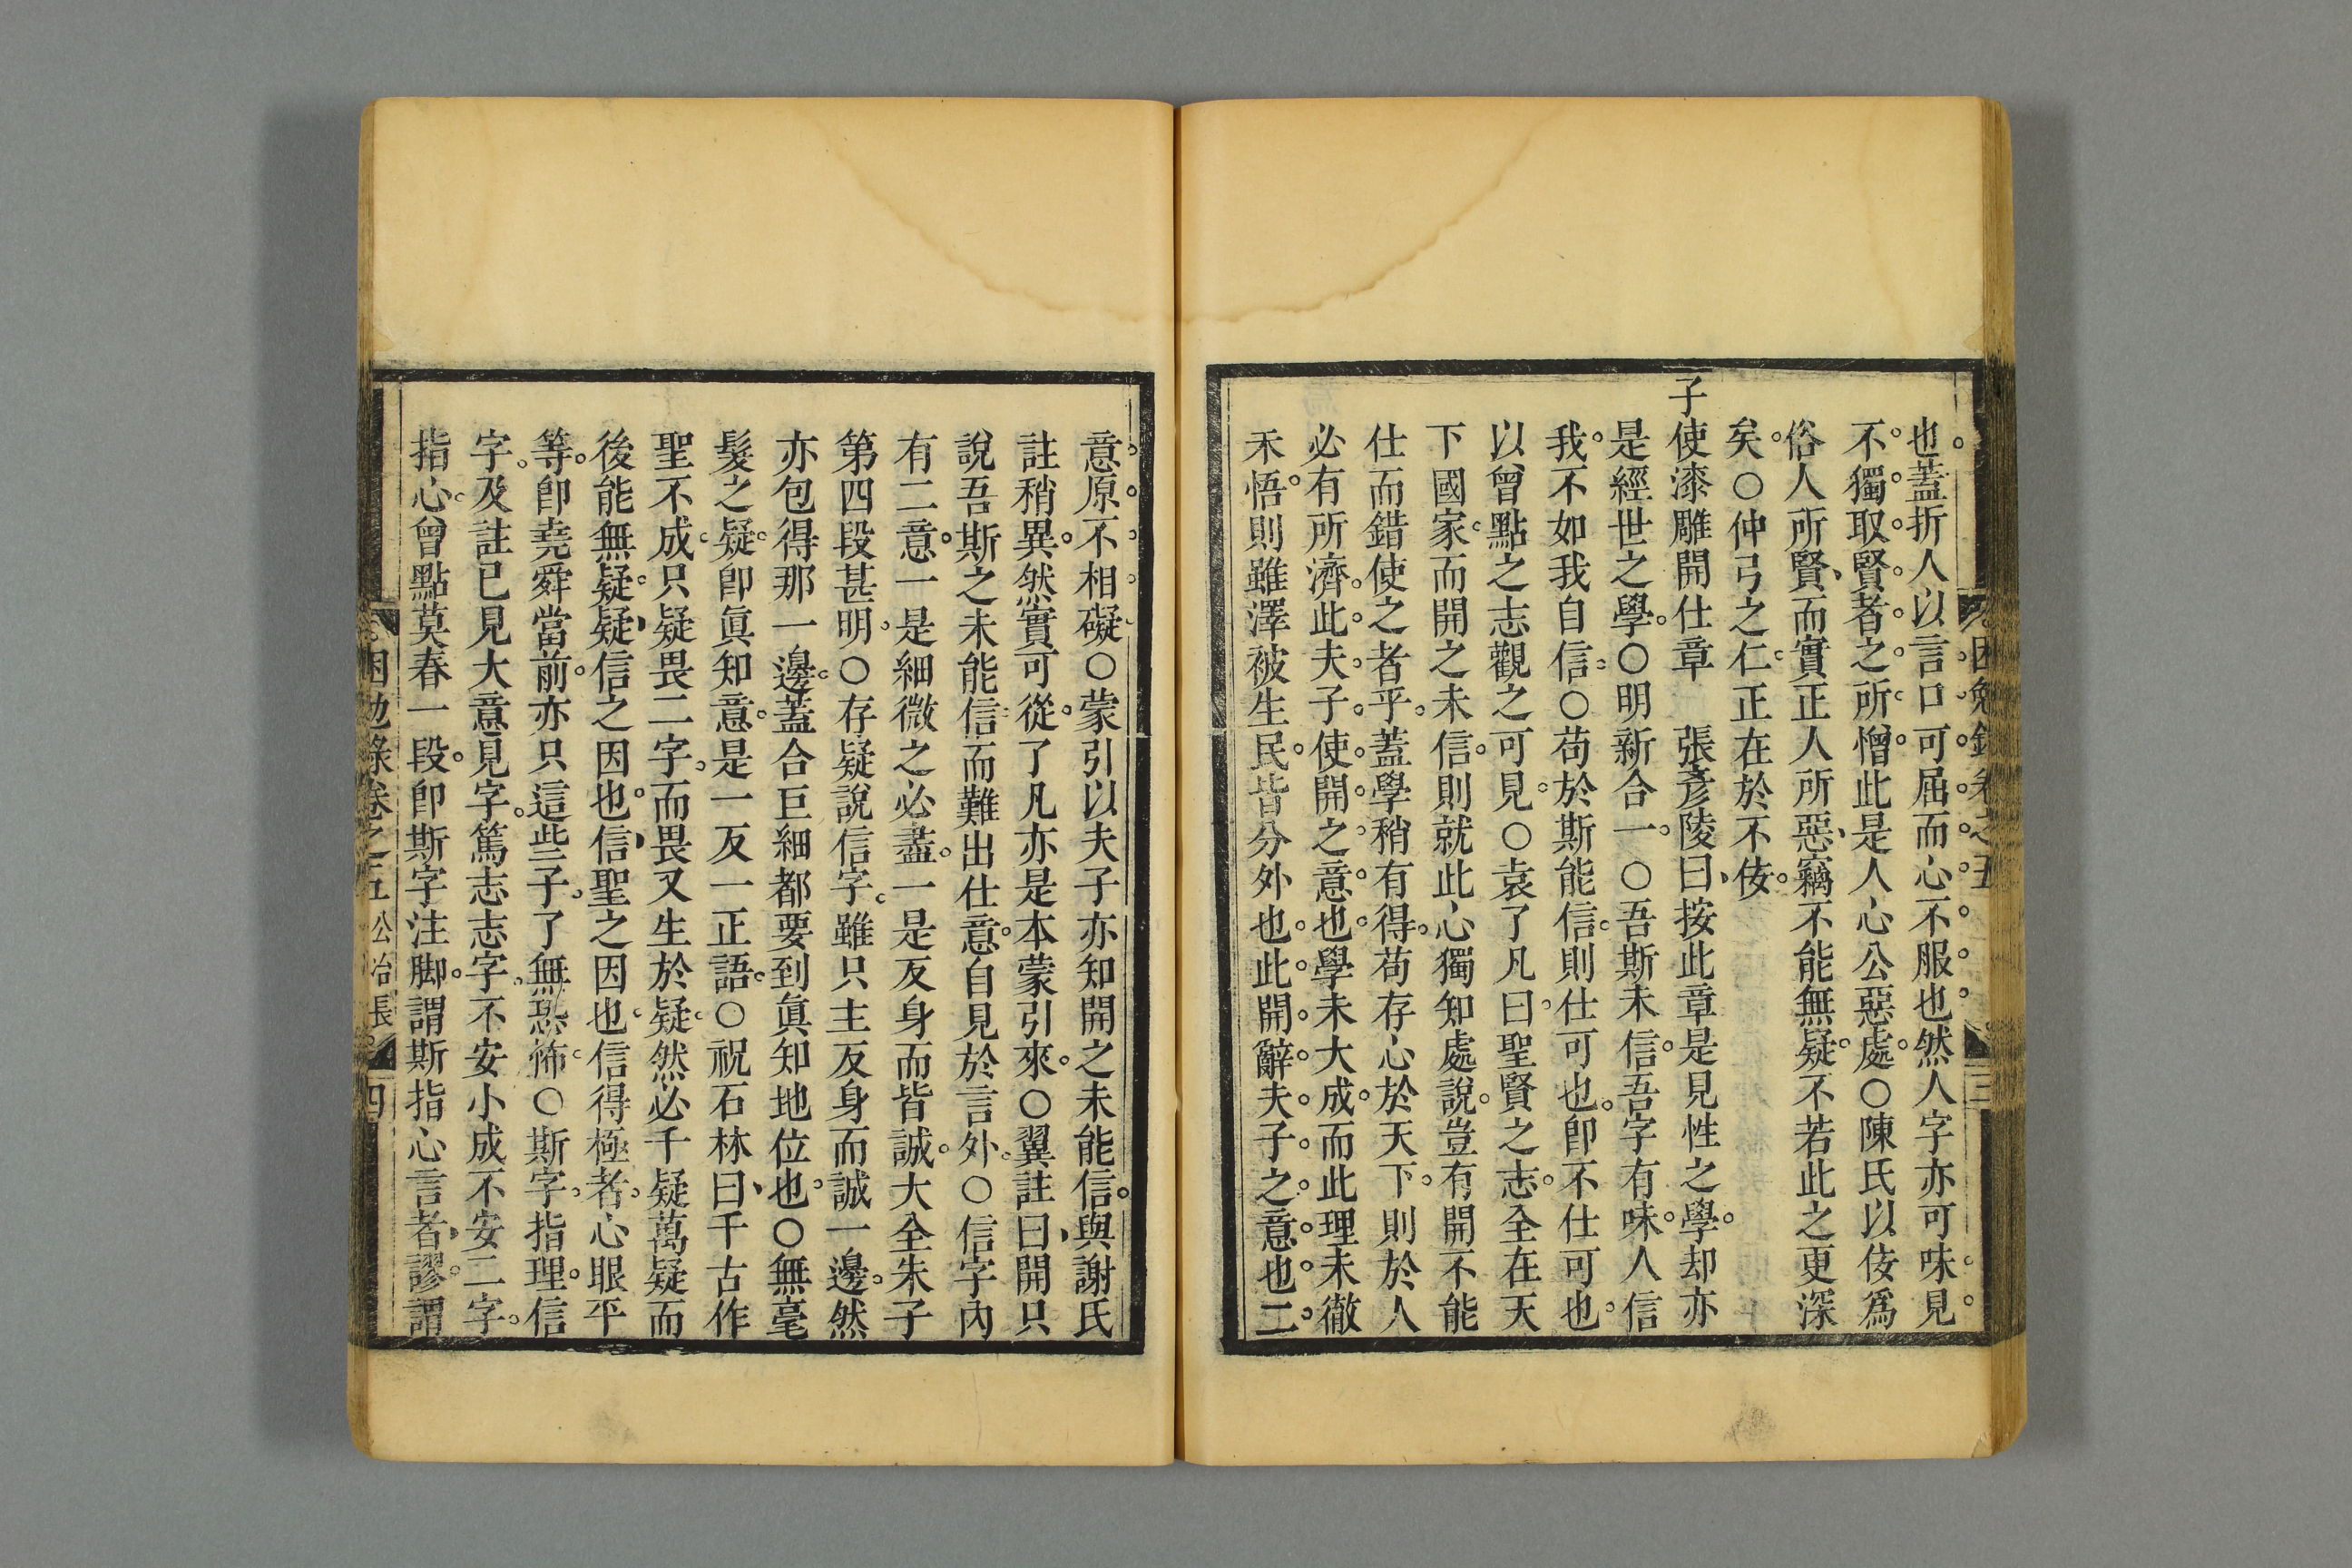 也蓋折人以言口可屈而心不服也然人字亦可味見
不獨取賢者之所憎此是人心公惡處○陳氏以佞爲
俗人所賢而實正人所惡竊不能無疑不若此之更深
矣○仲弓之仁正在於不佞
子使漆雕開仕章 張彥陵曰按此章是見性之學却亦
是經世之學○明新合一○吾斯未信吾字有味人信
我不如我自信○苟於斯能信則仕可也卽不仕可也
以曾點之志觀之可見○袁了凡曰聖賢之志全在天
下國家而開之未信則就此心獨知處說豈有開不能
仕而錯使之者乎蓋學稍有得苟存心於天下則於人
必有所濟此夫子使開之意也學未大成而此理未徹
未悟則雖澤被生民皆分外也此開辭夫子之意也二
困勉錄卷之五 三
意原不相礙○蒙引以夫子亦知開之未能信與謝氏
註稍異然實可從了凡亦是本蒙引來○翼註曰開只
說吾斯之未能信而難出仕意自見於言外○信字內
有二意一是細微之必盡一是反身而皆誠大全朱子
第四段甚明○存疑說信字雖只主反身而誠一邊然
亦包得那一邊蓋合巨細都要到眞知地位也○無毫
髮之疑卽眞知意是一反一正語○祝石林曰千古作
聖不成只疑畏二字而畏又生於疑然必千疑萬疑而
後能無疑疑信之因也信聖之因也信得極者心眼平
等卽堯舜當前亦只這些子了無恐怖○斯字指理信
字及註已見大意見字篤志志字不安小成不安二字
指心曾點莫春一段卽斯字注脚謂斯指心言者謬謂
困勉錄卷之五 公冶長 四